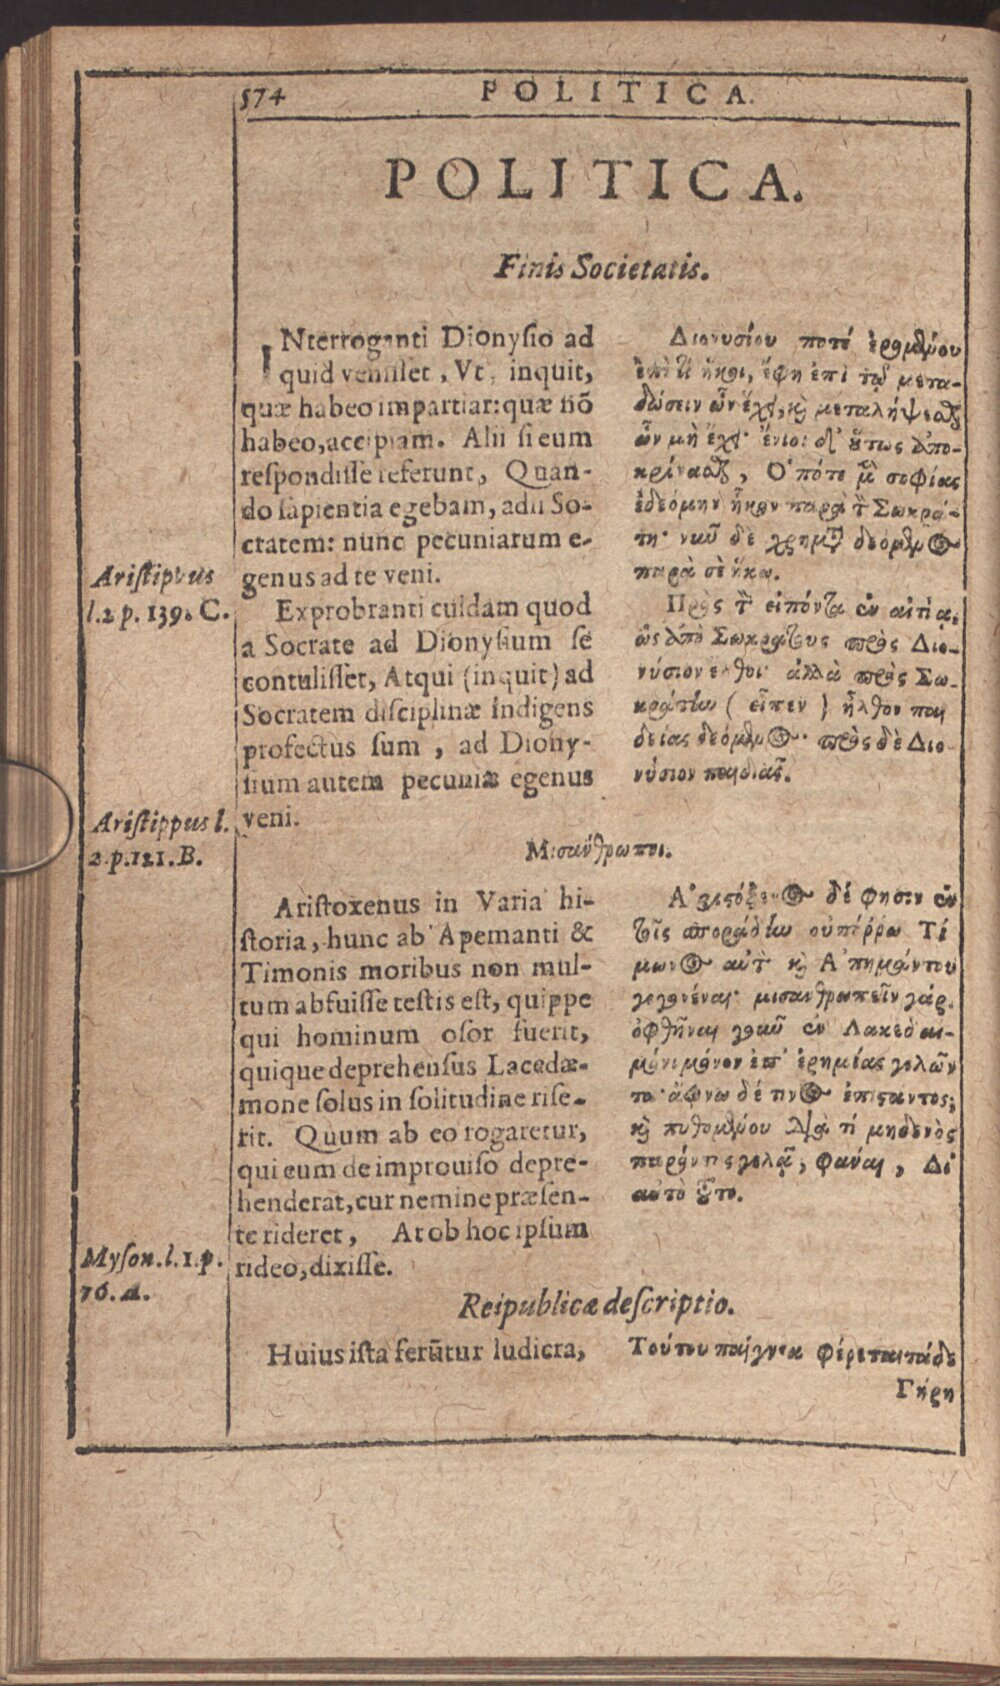 574
POLITICA.
POLITICA.
Finis Societatis.
INterroganti Dionyſio ad
quid veniſſet, Vt, inquit,
quæ habeo impartiar: quæ nõ
habeo, accipiam. Alii ſi eum
reſpondiſſe referunt, Quan-
do ſapientia egebam, adii So-
cratem: nunc pecuniarum e-
genus ad te veni.
Exprobranti cuidam quod
a Socrate ad Dionyſium ſe
contuliſſet, Atqui (inquit) ad
Socratem diſciplinæ indigens
profectus ſum, ad Diony-
ſium autem pecuniæ egenus
veni.
Διονυσίου ποτέ ἐρομένου
ἐπὶ τί ἥκοι, ἔφη ἐπὶ τῷ μετα-
δώσειν ὧν ἔχοι, καὶ μεταλήψεσθαι
ὧν μὴ ἔχοι· ἔνιοι δ' οὕτως ἀπο-
κρίνασθαι, Ὁπότε μὲν σοφίας
ἐδεόμην ἧκον παρὰ τὸν Σωκρά-
τη· νῦν δὲ χρημάτων δεόμενος
παρὰ σὲ ἥκω.
Πρὸς τὸν εἰπόντα ἐν αἰτίᾳ,
ὡς ἀπὸ Σωκράτους πρὸς Διο-
νύσιον ἔλθοι· ἀλλὰ πρὸς Σω-
κράτην (εἶπεν) ἦλθον παι
δείας δεόμενος· πρὸς δὲ Διο-
νύσιον παιδιᾶς.
Ariſtippus
l.2 p. 139. C.
Ariſtippus l.
2.p.121.B.
Μισάνθρωποι.
Ariſtoxenus in Varia hi-
ſtoria, hunc ab Apemanti &
Timonis moribus non mul-
tum abfuiſſe teſtis eſt, quippe
qui hominum oſor fuerit,
quique deprehenſus Lacedæ-
mone ſolus in ſolitudine riſe-
rit. Quum ab eo rogaretur,
qui eum de improuiſo depre-
henderat, cur nemine præſen-
te rideret, At ob hoc ipſum
rideo, dixiſſe.
Ἀριστόξενος δέ φησιν ἐν
τοῖς σποράδην οὐ πόρρω Τί
μωνος αὐτὸν καὶ Ἀπημάντου
γεγονέναι· μισανθρωπεῖν γάρ.
ὀφθῆναι γοῦν ἐν Λακεδαι-
μόνι μόνον ἐπ' ἐρημίας γελῶν
τα· ἄφνω δέ τινος ἐπιστάντος,
καὶ πυθομένου διὰ τί μηδενὸς
παρόντος γελᾷ, φάναι, Δι'
αὐτὸ τοῦτο.
Myſon. l.1.p.
76. A.
Reipublicæ deſcriptio.
Huius iſta ferũtur ludicra,
Τούτου παίγνια φέρεται τάδε
Γήρη